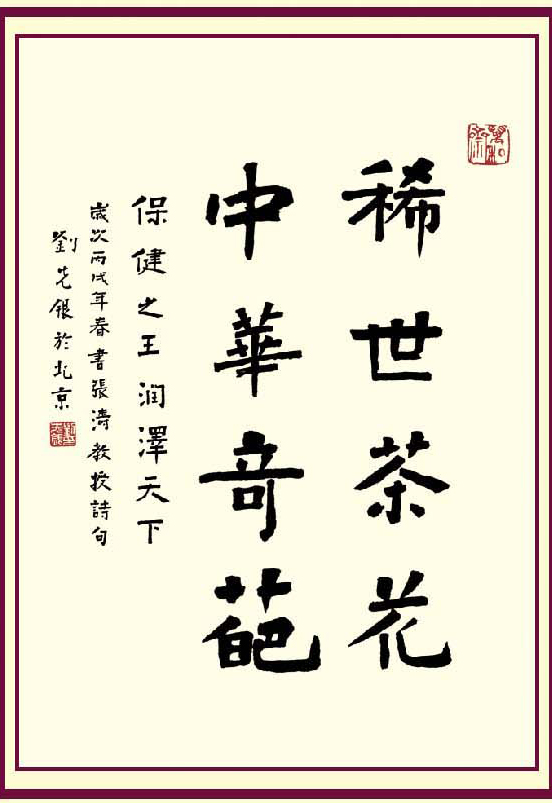 稀世茶花
中華奇葩
保健之王润澤天下
歲次丙戌年春書張濤教授詩句
劉先銀於北京